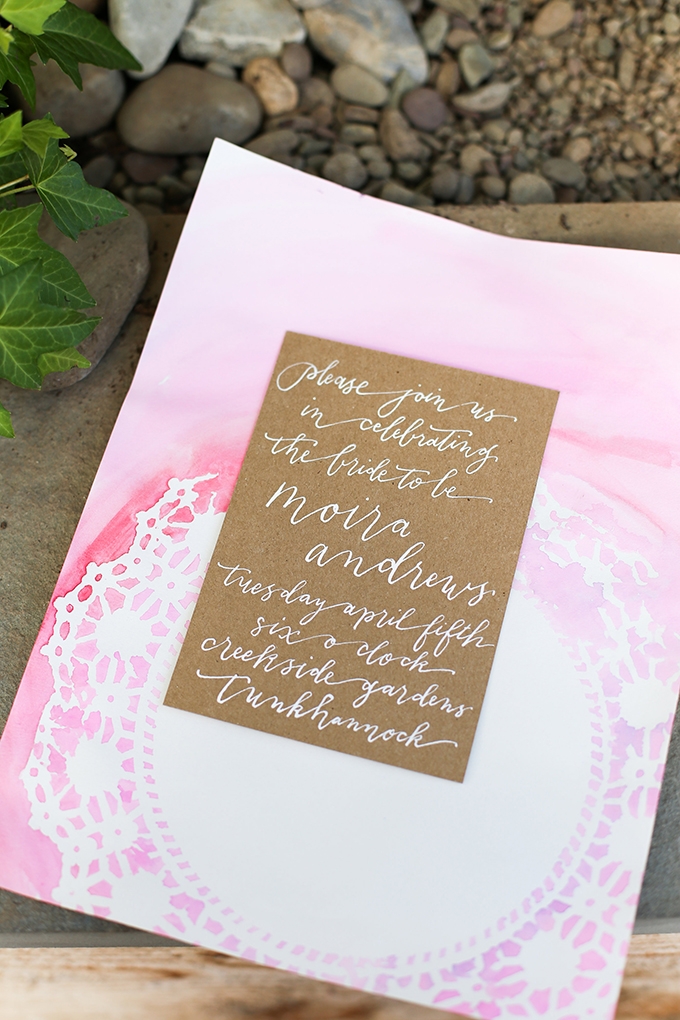 please join us
in celebrating
the bride to be
moira
andrews
tuesday april fifth
six o clock
creekside gardens
tunkhannock